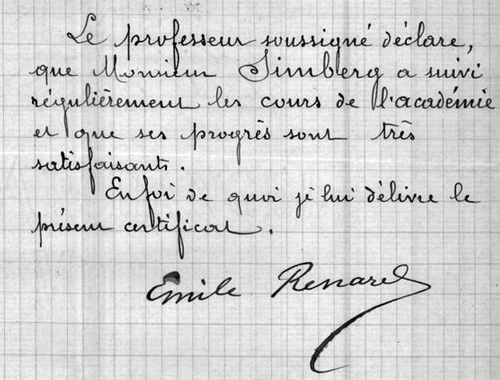 Le professeur soussigné déclare,
que Monsieur Simberg a suivi
régulièrement les cours de l'académie
et que ses progrès sont très
satisfaisants.
En foi de quoi je lui délivre le
présent certificat.
Emile Renard